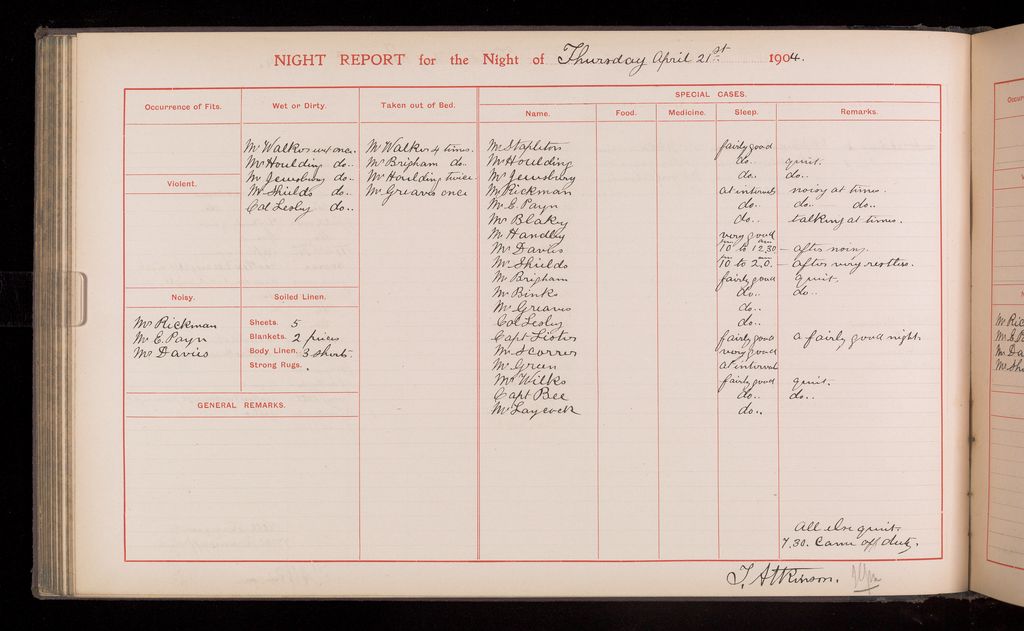 NIGHT REPORT for the Night of Thursday April 21st 1904.
Occurrence of Fits.
Wet or Dirty.
Taken out of Bed.
SPECIAL CASES.
Name.
Food.
Medicine.
Sleep.
Remarks.
Mr Walker wet once.
Mr Houlding do..
Mr Jewsbury do..
Mr Shields do..
Col Lesley do..
Mr Walker 4 times.
Mr Brigham do..
Mr Houlding twice
Mr Greaves once
Violent.
Noisy.
Mr Rickman
Mr E. Payn
Mr Davies
Soiled Linen.
Sheets. 5
Blankets. 2 pieces
Body Linen. 3 shirts
Strong Rugs. .
GENERAL REMARKS.
Mr Stapleton fairly good
Mr Houlding do.. quiet.
Mr Jewsbury do.. do..
Mr Rickman at intervals noisy at times.
Mr E. Payn do.. do.. do..
Mr Blakey do.. talking at times.
Mr Handley very good
Mr Davies 10 pm to 12.30 am – after noisy.
Mr Shields 10 pm to 2.0 am – after very restless.
Mr Brigham fairly good quiet.
Mr Binks do.. do..
Mr Greaves do..
Col Lesley do..
Capt fairly good a fairly good night.
Mr Scorrer very good
Mr Green at intervals
Mr Wilks fairly good quiet.
Capt Bee do.. do..
Mr Laycock do..
All else quiet.
7.30. Came off duty.
T. Atkinson.
Occur
V
N
Mr Ric
Mr E. Pa
Mr Da
Mr Shi